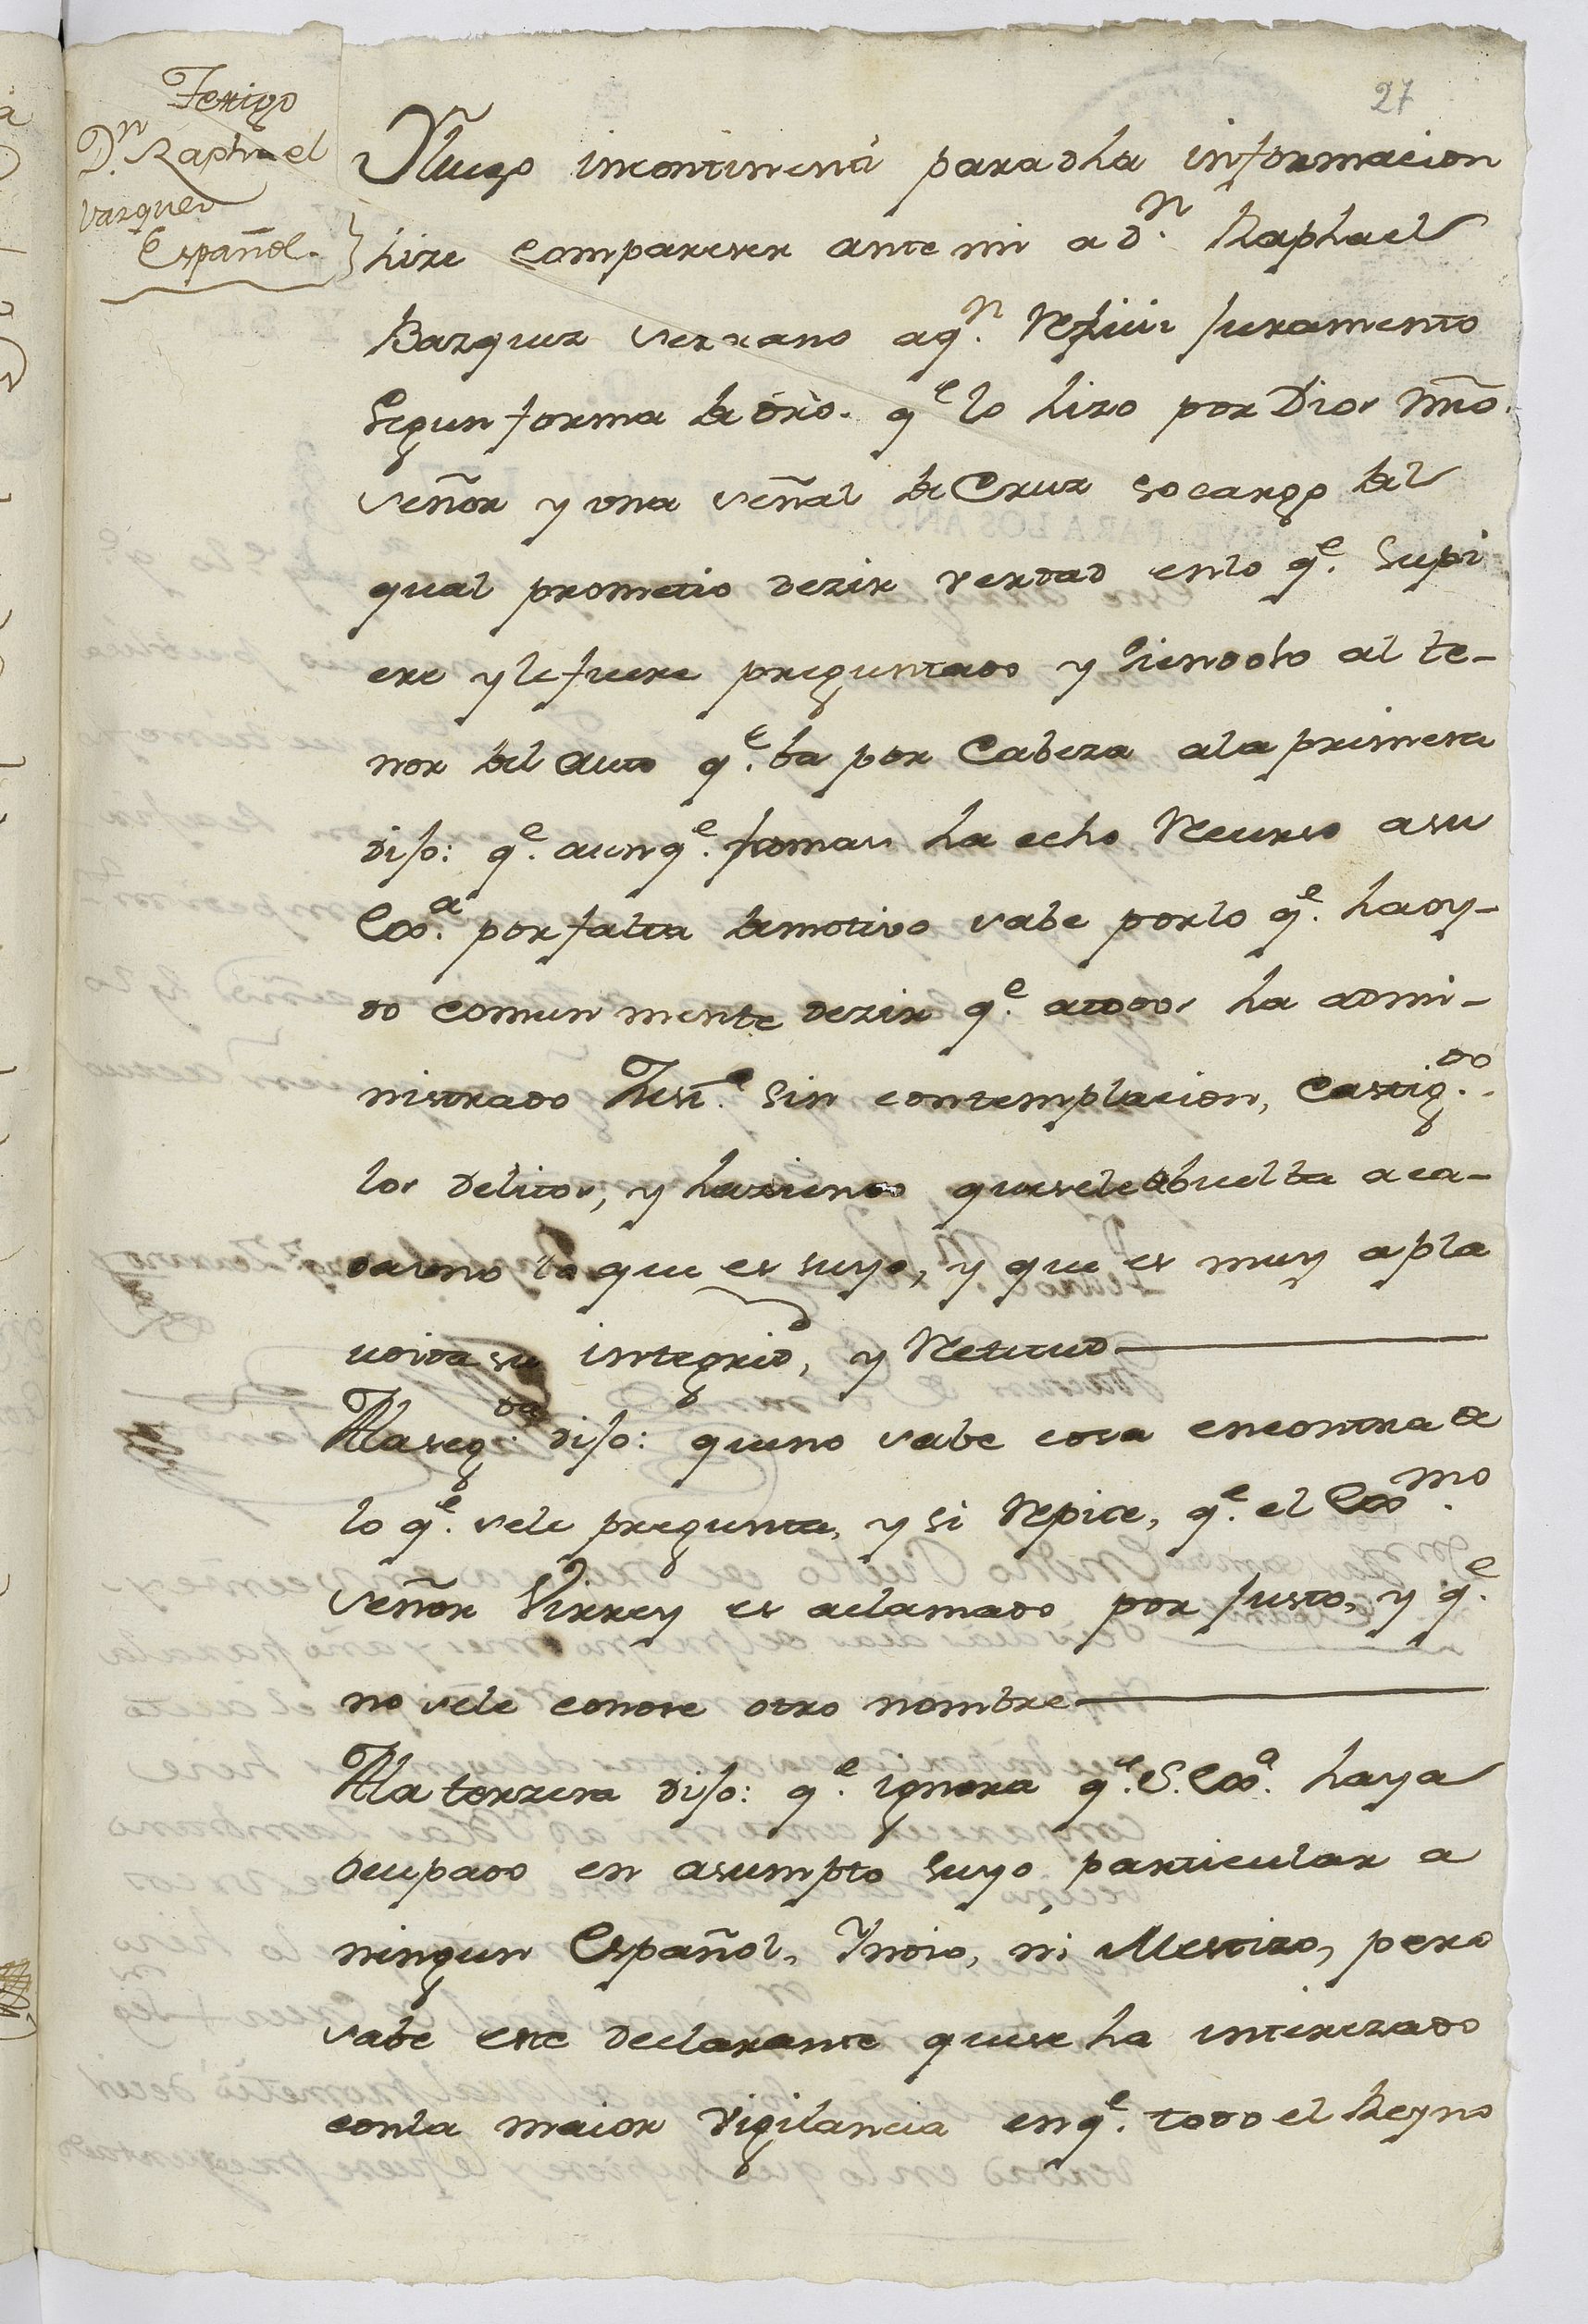 27
Testigo
D.n Raphael
Vazquez
Español.
Yluego incontinenti para dha informacion
hize comparecer ante mi a D.n Raphael
Bazquez serrano aq.n Resivi Juramento
Segun forma de dro. q.e lo hizo por Dios Nrō.
señor y una señal de Cruz so cargo del
qual prometio dezir verdad en lo q.e Supi
ere y le fuere preguntado y siendolo al te-
nor del auto q.e ba por Cabeza ala primera
dijo: q.e aunq.e jamas ha echo Recurso asu
Exã. por falta de motivo sabe por lo q.e ha oy-
do comun mente dezir q.e atodos ha admi-
nistrado Just.a Sin contemplacion, Castig.do
los delitos, y haziendo quesele debuelba a ca-
dauno lo que es suyo, y que es muy apla
udida su integrid.d, y Retitud
Ala seg.da dijo: queno sabe cosa encontra de
lo q.e sele pregunta, y si Repite, q.e el Exmo.
Señor Virrey es aclamado por Justo, y q.e
no sele conose otro nombre
Ala terzera dijo: q.e ignora q.e S. Exã. haya
ocupado en asumpto suyo particular a
ningun Español, Yndio, ni Mestizo, pero
sabe este declarante quese ha interezado
conla maior Vigilancia enq.e todo el Reyno